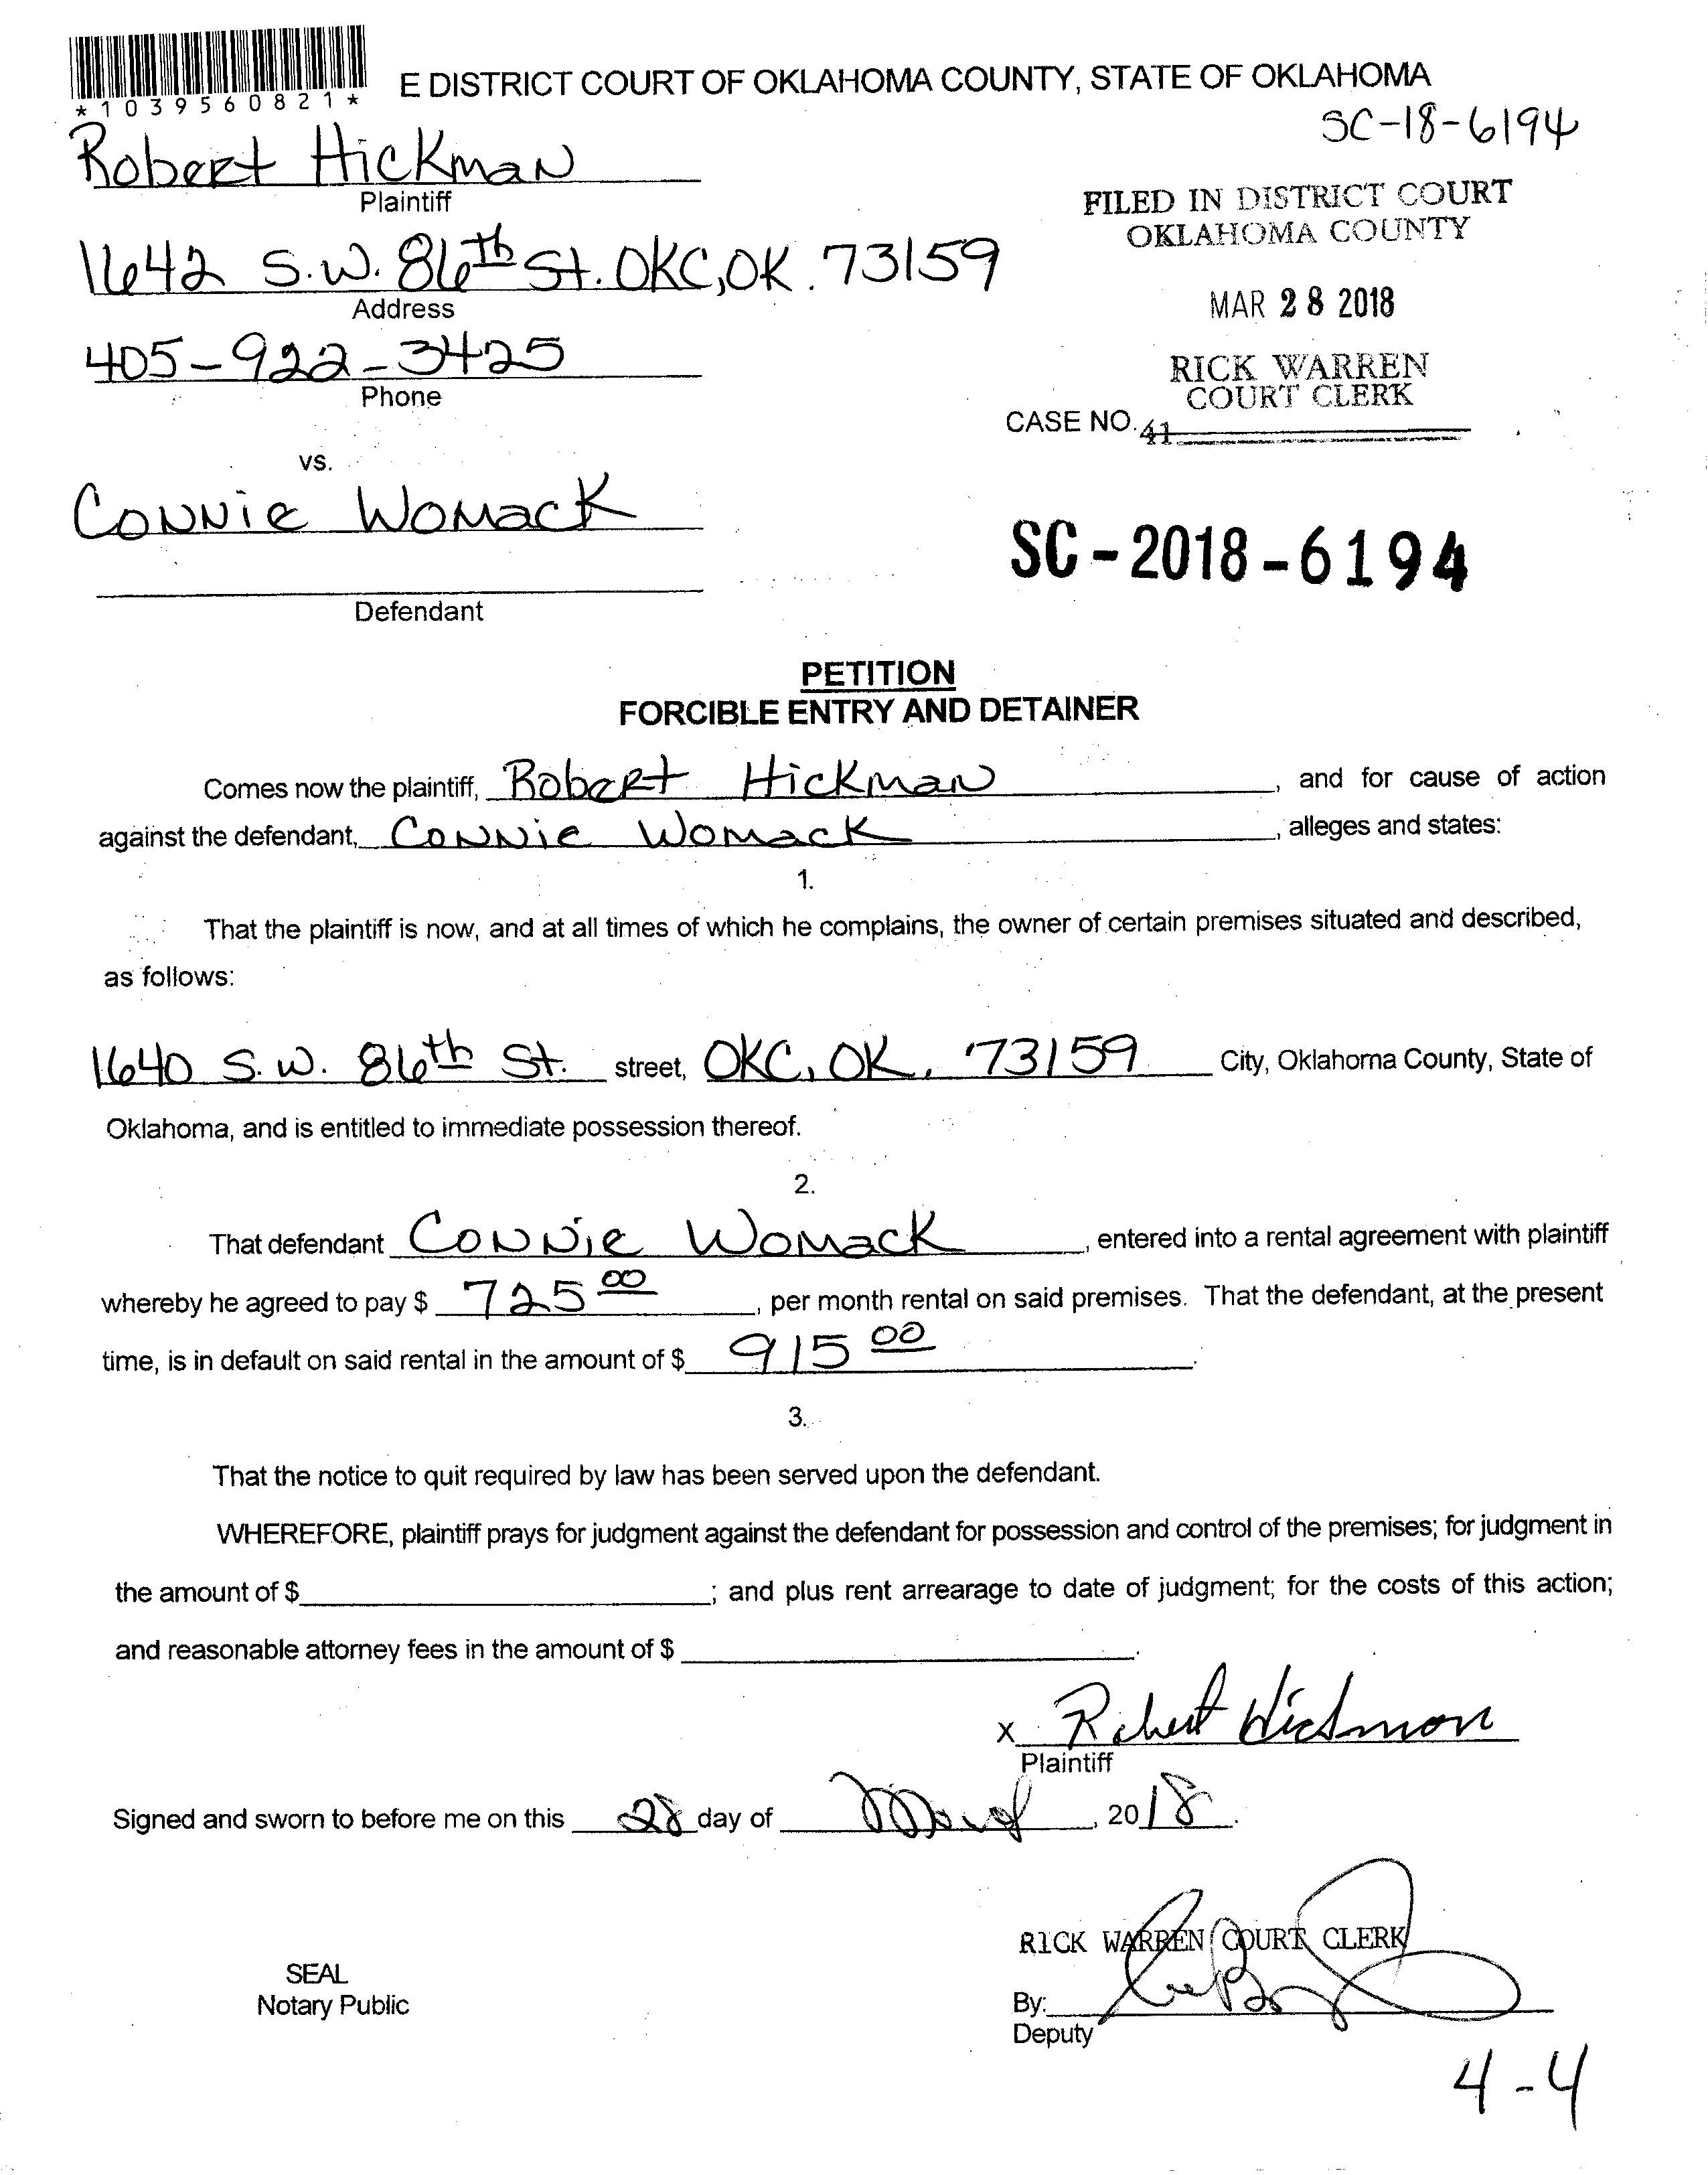 *1039560821*
E DISTRICT COURT OF OKLAHOMA COUNTY, STATE OF OKLAHOMA
SC-18-6194
Robert Hickman
Plaintiff
FILED IN DISTRICT COURT
OKLAHOMA COUNTY
1642 S.W. 86th St. OKC, OK. 73159
Address
MAR 28 2018
405-922-3425
Phone
RICK WARREN
COURT CLERK
CASE NO. 41
vs.
Connie Womack
SC-2018-6194
Defendant
PETITION
FORCIBLE ENTRY AND DETAINER
Comes now the plaintiff, Robert Hickman, and for cause of action
against the defendant, Connie Womack, alleges and states:
1.
That the plaintiff is now, and at all times of which he complains, the owner of certain premises situated and described,
as follows:
1640 S.W. 86th St. street, OKC, OK, 73159 City, Oklahoma County, State of
Oklahoma, and is entitled to immediate possession thereof.
2.
That defendant Connie Womack, entered into a rental agreement with plaintiff
whereby he agreed to pay $ 725 00, per month rental on said premises. That the defendant, at the present
time, is in default on said rental in the amount of $ 915 00.
3.
That the notice to quit required by law has been served upon the defendant.
WHEREFORE, plaintiff prays for judgment against the defendant for possession and control of the premises; for judgment in
the amount of $ ; and plus rent arrearage to date of judgment; for the costs of this action;
and reasonable attorney fees in the amount of $ .
X Robert Hickman
Plaintiff
Signed and sworn to before me on this 28 day of March, 2018.
RICK WARREN COURT CLERK
SEAL
Notary Public
By:
Deputy
4-4